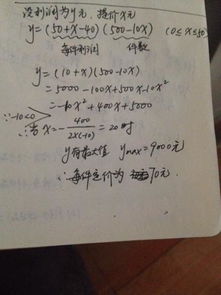 设利润为y元,提价x元
y=(50+x-40)(500-10x) (0≤x≤50)
每件利润 件数
y=(10+x)(500-10x)
=5000-100x+500x-10x²
=-10x²+400x+5000
∵-10<0
∴当x=-400/2×(-10)=20时
y有最大值 ymax=9000元
∴每件定价为70元.